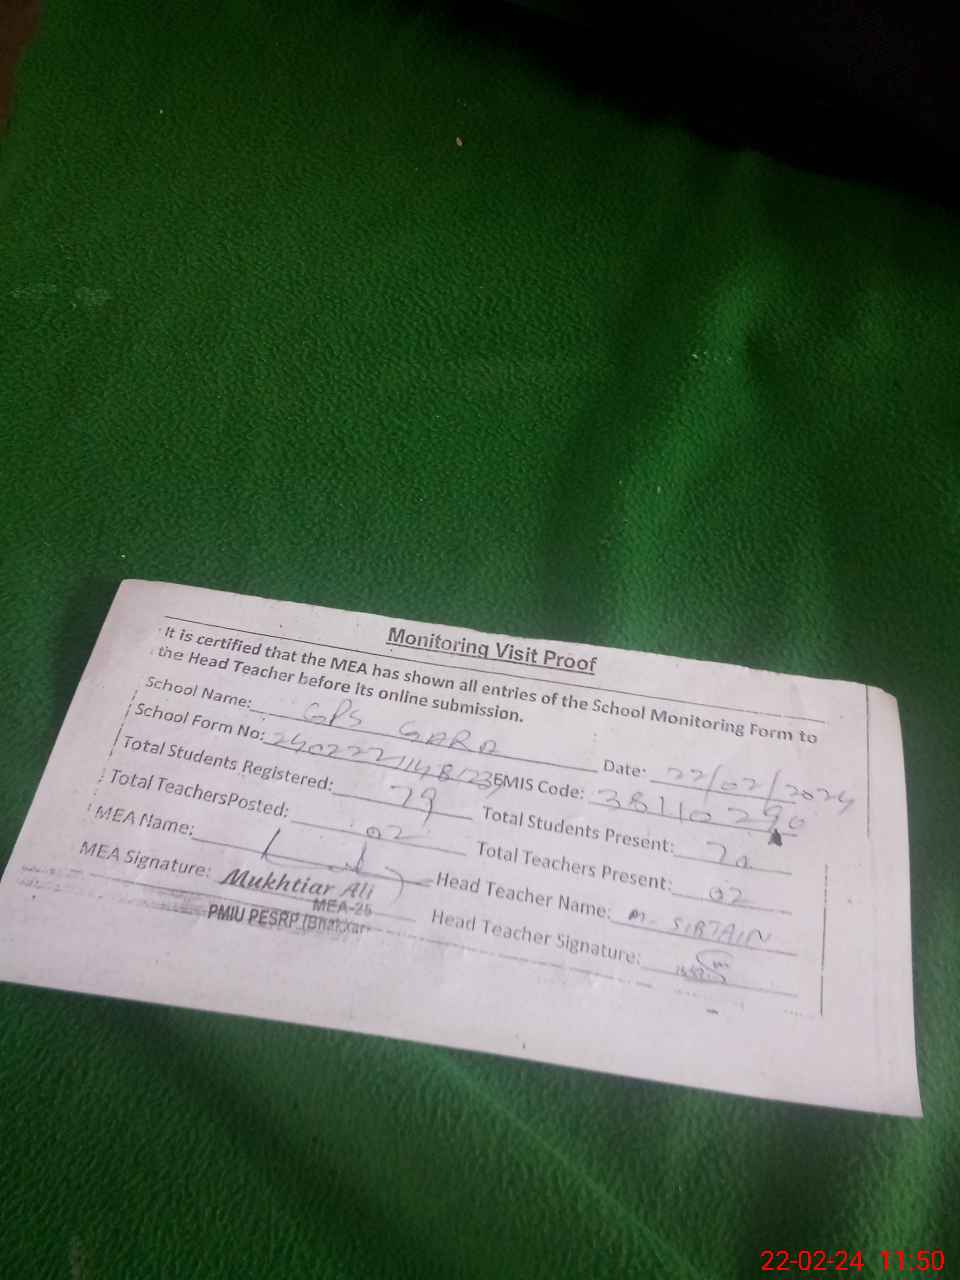 Monitoring Visit Proof
It is certified that the MEA has shown all entries of the School Monitoring Form to
the Head Teacher before its online submission.
School Name: GPS GARA Date: 22/02/2024
School Form No: EMIS Code: 38110290
Total Students Registered: 79 Total Students Present:
Total TeachersPosted: 02 Total Teachers Present: 02
MEA Name: Head Teacher Name: M. SIBTAIN
MEA Signature: Mukhtiar Ali Head Teacher Signature:
MEA-25
PMIU PESRP (Bhakkar)
22-02-24 11:50